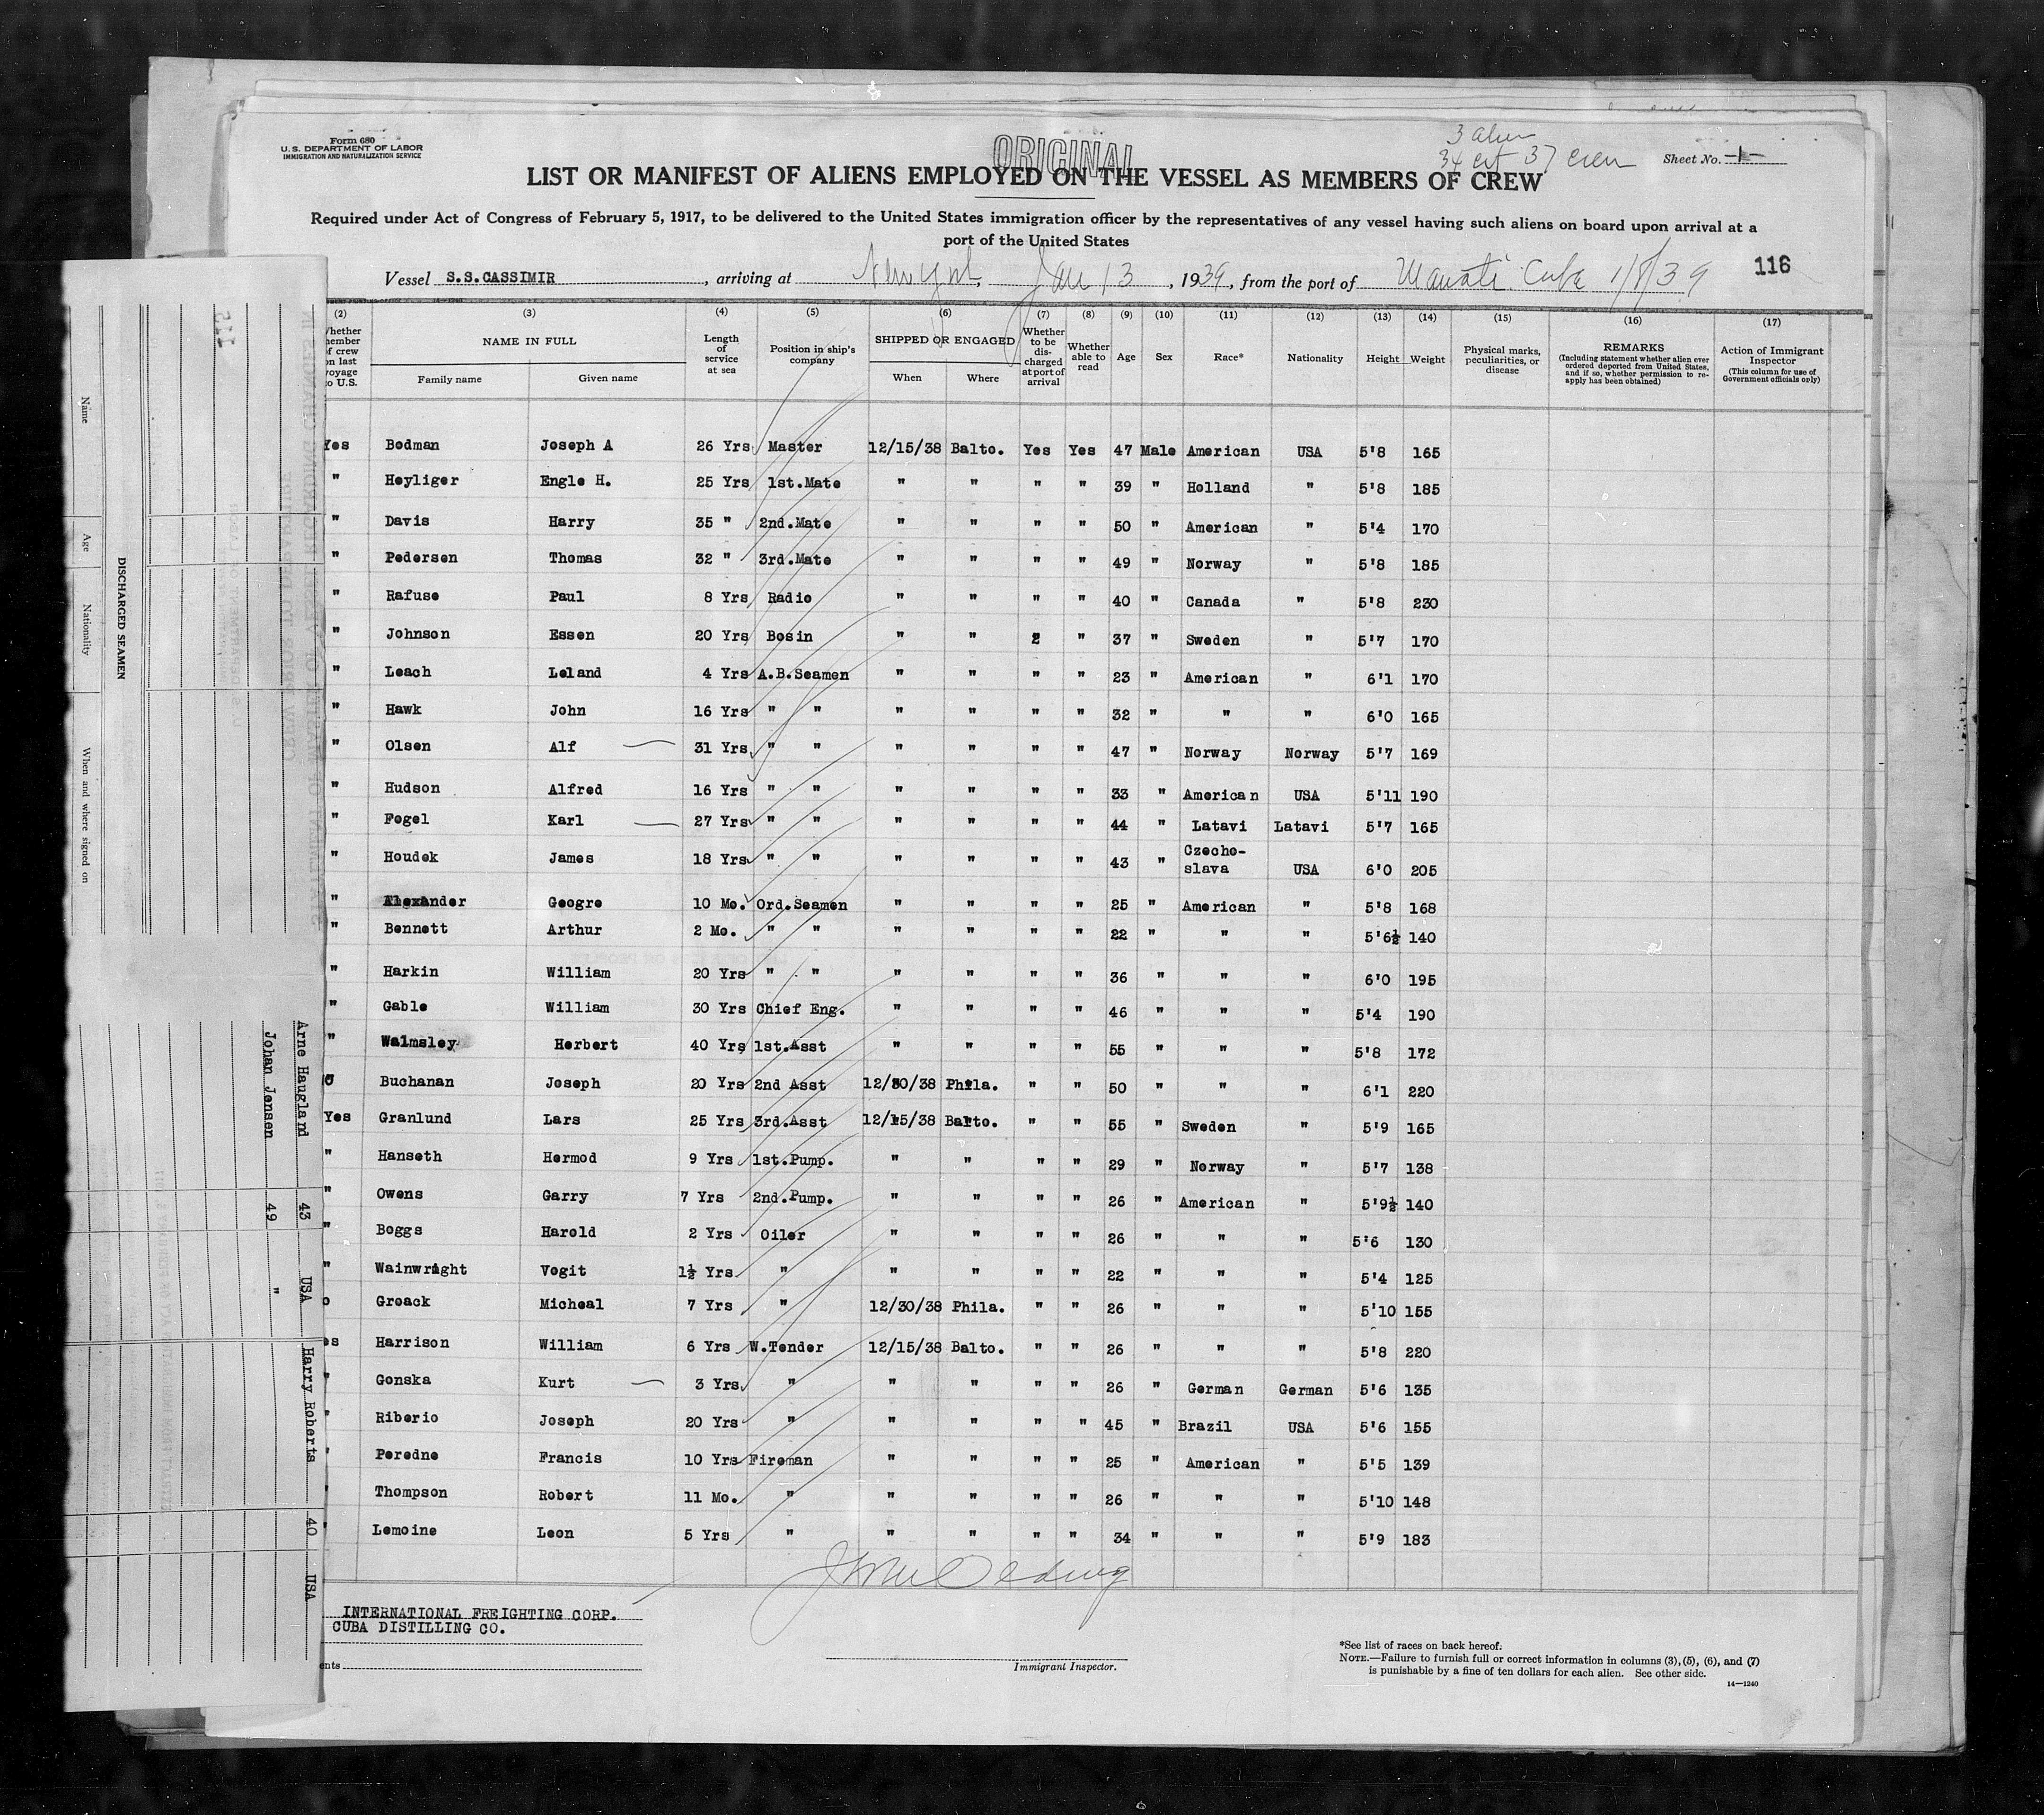 Form 680
U.S. DEPARTMENT OF LABOR
IMMIGRATION AND NATURALIZATION SERVICE
ORIGINAL
3 alien
34 cit 37 crew
Sheet No. -1-
LIST OR MANIFEST OF ALIENS EMPLOYED ON THE VESSEL AS MEMBERS OF CREW
Required under Act of Congress of February 5, 1917, to be delivered to the United States immigration officer by the representatives of any vessel having such aliens on board upon arrival at a
port of the United States
Vessel S.S.CASSIMIR, arriving at New York, Jan 13, 1939, from the port of Manati Cuba 1/8/39
116
(2) (3) (4) (5) (6) (7) (8) (9) (10) (11) (12) (13) (14) (15) (16) (17)
Whether member of crew on last voyage to U.S.
NAME IN FULL
Family name Given name
Length of service at sea
Position in ship's company
SHIPPED OR ENGAGED
When Where
Whether to be discharged at port of arrival
Whether able to read
Age Sex Race* Nationality Height Weight
Physical marks, peculiarities, or disease
REMARKS
(Including statement whether alien ever ordered deported from United States, and if so, whether permission to reapply has been obtained)
Action of Immigrant Inspector
(This column for use of Government officials only)
Yes Bodman Joseph A 26 Yrs Master 12/15/38 Balto. Yes Yes 47 Male American USA 5'8 165
" Heyliger Engle H. 25 Yrs 1st.Mate " " " " 39 " Holland " 5'8 185
" Davis Harry 35 " 2nd.Mate " " " " 50 " American " 5'4 170
" Pedersen Thomas 32 " 3rd.Mate " " " " 49 " Norway " 5'8 185
" Rafuse Paul 8 Yrs Radio " " " " 40 " Canada " 5'8 230
" Johnson Essen 20 Yrs Bosin " " " 37 " Sweden " 5'7 170
" Leach Leland 4 Yrs A.B.Seamen " " " " 23 " American " 6'1 170
" Hawk John 16 Yrs " " " " " " 32 " " " 6'0 165
" Olsen Alf 31 Yrs " " " " " " 47 " Norway Norway 5'7 169
" Hudson Alfred 16 Yrs " " " " " " 33 " American USA 5'11 190
" Fogel Karl 27 Yrs " " " " " " 44 " Latavi Latavi 5'7 165
" Houdek James 18 Yrs " " " " " " 43 " Czecho-slava USA 6'0 205
" Alexander Geogre 10 Mo. Ord.Seamen " " " " 25 " American " 5'8 168
" Bennett Arthur 2 Mo. " " " " " " 22 " " " 5'6½ 140
" Harkin William 20 Yrs " " " " " " 36 " " " 6'0 195
" Gable William 30 Yrs Chief Eng. " " " " 46 " " " 5'4 190
" Walmsley Herbert 40 Yrs 1st.Asst " " " " 55 " " " 5'8 172
Buchanan Joseph 20 Yrs 2nd Asst 12/30/38 Phila. " " 50 " " " 6'1 220
Yes Granlund Lars 25 Yrs 3rd.Asst 12/15/38 Balto. " " 55 " Sweden " 5'9 165
" Hanseth Hermod 9 Yrs 1st.Pump. " " " " 29 " Norway " 5'7 138
" Owens Garry 7 Yrs 2nd.Pump. " " " " 26 " American " 5'9½ 140
" Boggs Harold 2 Yrs Oiler " " " " 26 " " " 5'6 130
" Wainwright Vogit 1½ Yrs " " " " " 22 " " " 5'4 125
o Groack Micheal 7 Yrs " 12/30/38 Phila. " " 26 " " " 5'10 155
es Harrison William 6 Yrs W.Tender 12/15/38 Balto. " " 26 " " " 5'8 220
" Gonska Kurt 3 Yrs. " " " " " 26 " German German 5'6 135
" Riberio Joseph 20 Yrs " " " " " 45 " Brazil USA 5'6 155
" Peredne Francis 10 Yrs Fireman " " " " 25 " American " 5'5 139
" Thompson Robert 11 Mo. " " " " " 26 " " " 5'10 148
" Lemoine Leon 5 Yrs " " " " " 34 " " " 5'9 183
INTERNATIONAL FREIGHTING CORP.
CUBA DISTILLING CO.
ents
Immigrant Inspector.
*See list of races on back hereof.
NOTE.—Failure to furnish full or correct information in columns (3), (5), (6), and (7)
is punishable by a fine of ten dollars for each alien. See other side.
14—1240
DISCHARGED SEAMEN
Name Age Nationality When and where signed on
Arne Haugland 43 USA
Johan Jensen 49 "
Harry Roberts 40 USA